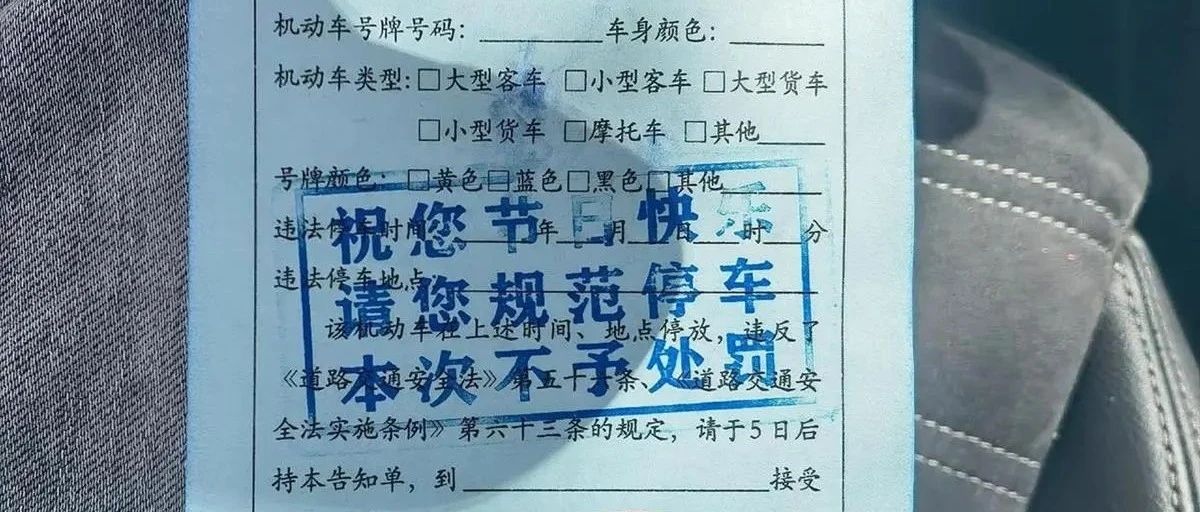 机动车号牌号码：________车身颜色：______
机动车类型:□大型客车 □小型客车 □大型货车
□小型货车 □摩托车 □其他____
号牌颜色：□黄色□蓝色□黑色□其他______
违法停车时间______年___月___日___时___分
违法停车地点________________
该机动车在上述时间、地点停放，违反了
《道路交通安全法》第五十六条、《道路交通安
全法实施条例》第六十三条的规定，请于5日后
持本告知单，到____________________接受
祝您节日快乐
请您规范停车
本次不予处罚